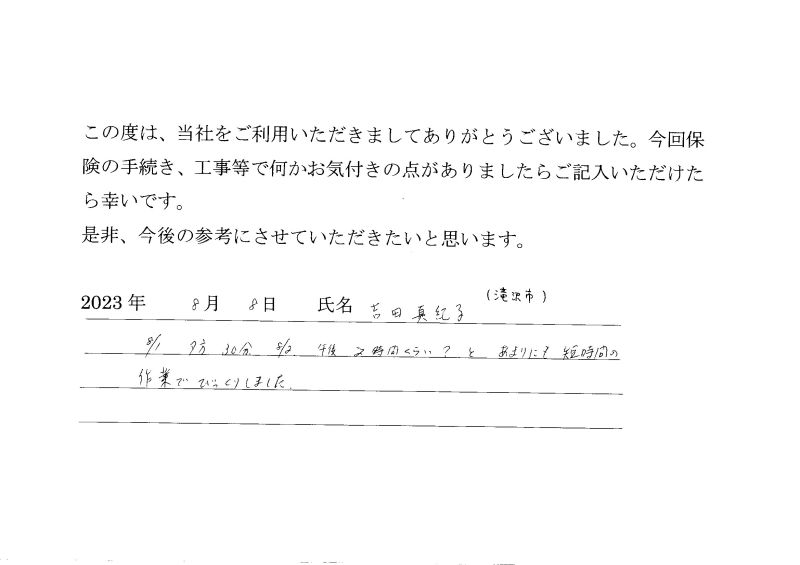 この度は、当社をご利用いただきましてありがとうございました。今回保
険の手続き、工事等で何かお気付きの点がありましたらご記入いただけた
ら幸いです。
是非、今後の参考にさせていただきたいと思います。
(滝沢市)
2023年 8月 8日 氏名 吉田真紀子
8/1 夕方 30分 8/2 午後 2時間くらい? と あまりにも 短時間の
作業で びっくりしました。